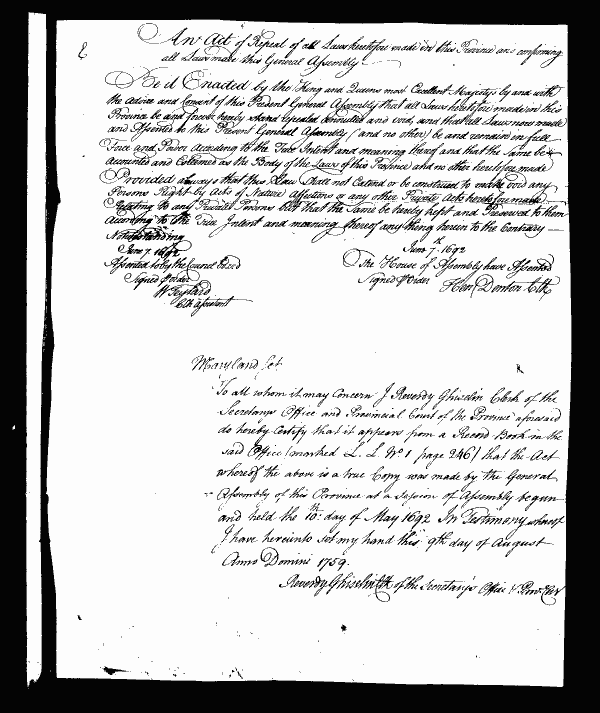 An Act of Repeal of all Laws heretofore made in this Province and confirming
all Laws made this General Assembly
Be it Enacted by the King and Queens most Excellent Majestys by and with
the Advice and Consent of this Present General Assembly that all Laws heretofore made in this
Province be and are hereby Repealed and void, and that all Laws now made
and Assented to this Present General Assembly (and no other) be and remain in full
Force and Power According to the True Intent and meaning thereof and that the Same be
Accounted and Esteemed as the Body of the Laws of this Province and no other heretofore made
Provided always that this Law Shall not Extend or be construed to make void any
Persons Right by Acts of Nature Affections or any other Private Acts heretofore made
Relating to any Private Persons but that the Same be hereby kept and Preserved to them
According to the True Intent and meaning thereof any thing herein to the Contrary
Notwithstanding
June 7. 1692
Assented to by the Council
Signed P order
Clk Assistant
June 7th 1692
The House of Assembly have Assented
Signed P Order Hen: Denton Clk
Maryland Set
To all whom it may Concern I Reverdy Ghiselin Clerk of the
Secretarys Office and Provincial Court of the Province aforesaid
do hereby Certify that it appears from a Record Book in the
said Office (marked L. L. No 1 page 246) that the Act
whereof the above is a true Copy was made by the General
Assembly of this Province at a Session of Assembly begun
and held the 10th day of May 1692 In Testimony whereof
I have hereunto set my hand this 9th day of August
Anno Domini 1759.
Reverdy Ghiselin Clk of the Secretary's Office & Prov. Court